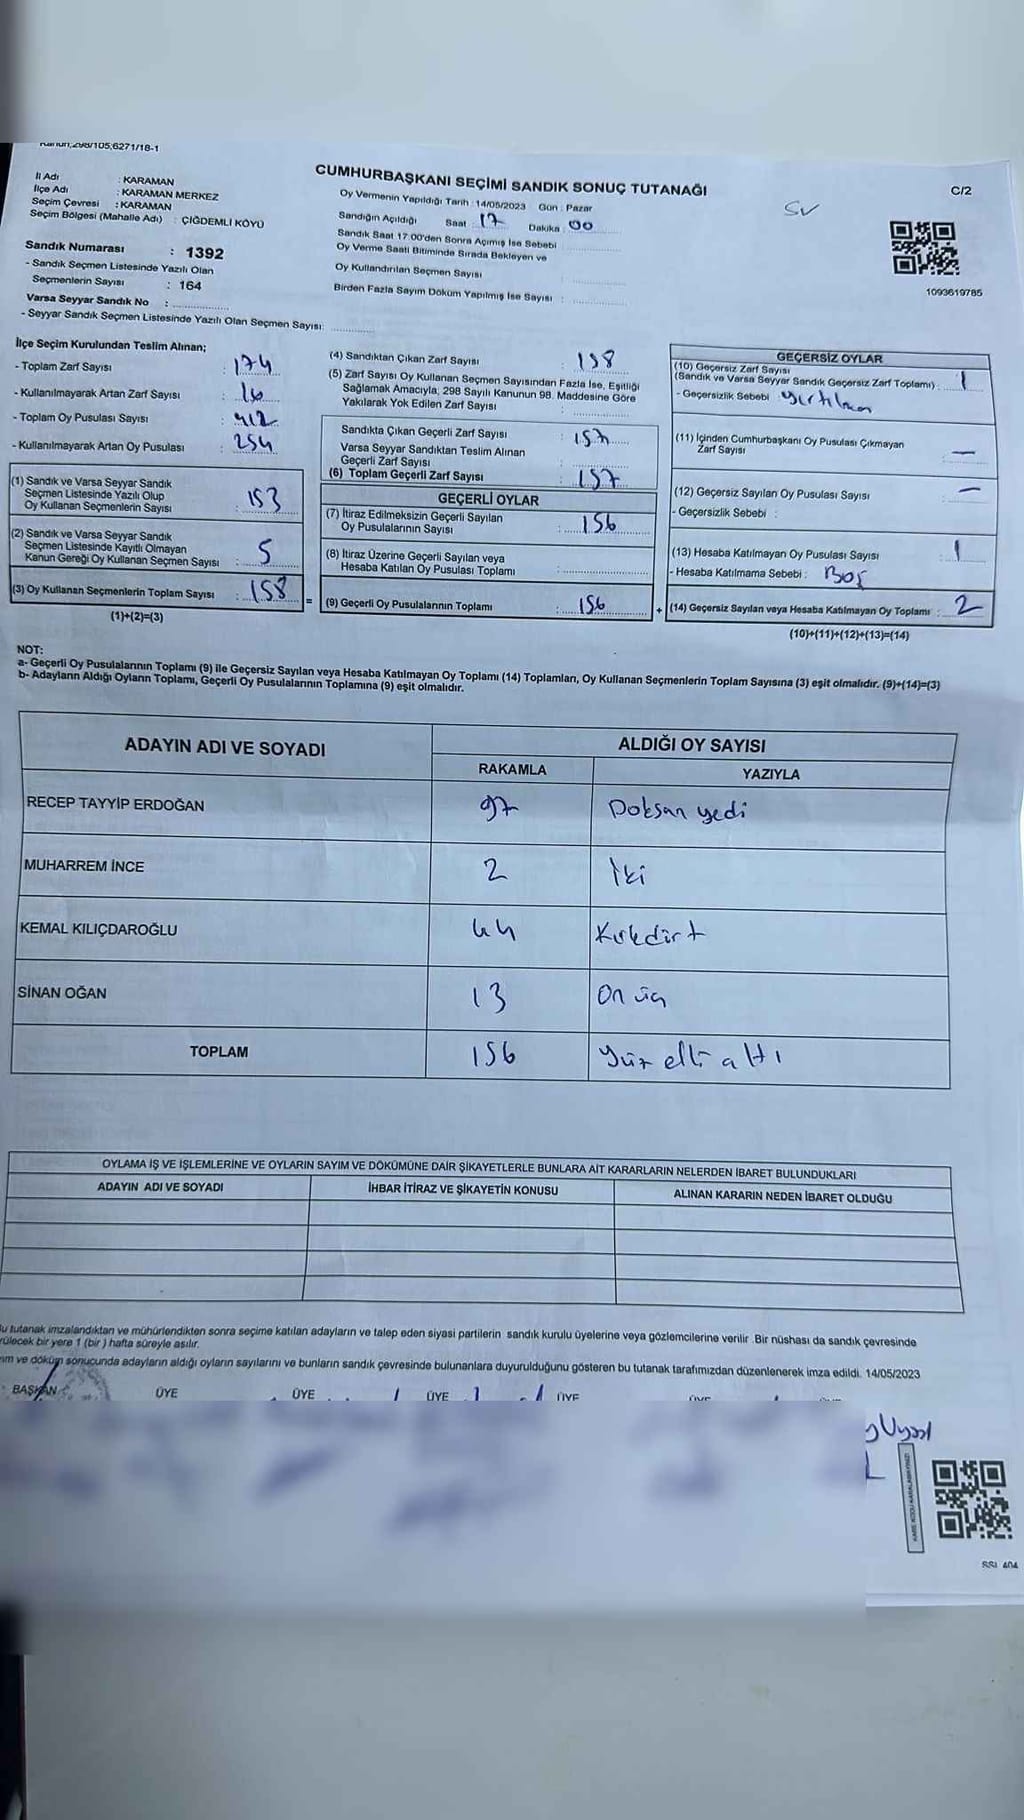 Kanun;298/105;6271/18-1
İl Adı : KARAMAN
İlçe Adı : KARAMAN MERKEZ
Seçim Çevresi : KARAMAN
Seçim Bölgesi (Mahalle Adı) : ÇİĞDEMLİ KÖYÜ
Sandık Numarası : 1392
- Sandık Seçmen Listesinde Yazılı Olan
Seçmenlerin Sayısı : 164
Varsa Seyyar Sandık No :
- Seyyar Sandık Seçmen Listesinde Yazılı Olan Seçmen Sayısı:
CUMHURBAŞKANI SEÇİMİ SANDIK SONUÇ TUTANAĞI
Oy Vermenin Yapıldığı Tarih : 14/05/2023 Gün : Pazar
Sandığın Açıldığı Saat : 17 Dakika : 00
Sandık Saat 17:00'den Sonra Açımış İse Sebebi
Oy Verme Saati Bitiminde Sırada Bekleyen ve
Oy Kullandırılan Seçmen Sayısı
Birden Fazla Sayım Döküm Yapılmış İse Sayısı :
C/2
1093619785
İlçe Seçim Kurulundan Teslim Alınan;
- Toplam Zarf Sayısı : 174
- Kullanılmayarak Artan Zarf Sayısı : 16
- Toplam Oy Pusulası Sayısı : 412
- Kullanılmayarak Artan Oy Pusulası : 254
(1) Sandık ve Varsa Seyyar Sandık
Seçmen Listesinde Yazılı Olup
Oy Kullanan Seçmenlerin Sayısı : 153
(2) Sandık ve Varsa Seyyar Sandık
Seçmen Listesinde Kayıtlı Olmayan
Kanun Gereği Oy Kullanan Seçmen Sayısı : 5
(3) Oy Kullanan Seçmenlerin Toplam Sayısı : 158
(1)+(2)=(3)
(4) Sandıktan Çıkan Zarf Sayısı : 158
(5) Zarf Sayısı Oy Kullanan Seçmen Sayısından Fazla İse, Eşitliği
Sağlamak Amacıyla; 298 Sayılı Kanunun 98. Maddesine Göre
Yakılarak Yok Edilen Zarf Sayısı :
Sandıkta Çıkan Geçerli Zarf Sayısı : 157
Varsa Seyyar Sandıktan Teslim Alınan
Geçerli Zarf Sayısı :
(6) Toplam Geçerli Zarf Sayısı : 157
GEÇERLİ OYLAR
(7) İtiraz Edilmeksizin Geçerli Sayılan
Oy Pusulalarının Sayısı : 156
(8) İtiraz Üzerine Geçerli Sayılan veya
Hesaba Katılan Oy Pusulası Toplamı :
= (9) Geçerli Oy Pusulalarının Toplamı : 156
GEÇERSİZ OYLAR
(10) Geçersiz Zarf Sayısı
(Sandık ve Varsa Seyyar Sandık Geçersiz Zarf Toplamı) : 1
- Geçersizlik Sebebi : yırtılma
(11) İçinden Cumhurbaşkanı Oy Pusulası Çıkmayan
Zarf Sayısı : —
(12) Geçersiz Sayılan Oy Pusulası Sayısı : —
- Geçersizlik Sebebi :
(13) Hesaba Katılmayan Oy Pusulası Sayısı : 1
- Hesaba Katılmama Sebebi : Boş
+ (14) Geçersiz Sayılan veya Hesaba Katılmayan Oy Toplamı : 2
(10)+(11)+(12)+(13)=(14)
NOT:
a- Geçerli Oy Pusulalarının Toplamı (9) ile Geçersiz Sayılan veya Hesaba Katılmayan Oy Toplamı (14) Toplamları, Oy Kullanan Seçmenlerin Toplam Sayısına (3) eşit olmalıdır. (9)+(14)=(3)
b- Adayların Aldığı Oyların Toplamı, Geçerli Oy Pusulalarının Toplamına (9) eşit olmalıdır.
ADAYIN ADI VE SOYADI ALDIĞI OY SAYISI
RAKAMLA YAZIYLA
RECEP TAYYİP ERDOĞAN 97 Doksan yedi
MUHARREM İNCE 2 İki
KEMAL KILIÇDAROĞLU 44 Kırkdört
SİNAN OĞAN 13 On üç
TOPLAM 156 Yüz elli altı
OYLAMA İŞ VE İŞLEMLERİNE VE OYLARIN SAYIM VE DÖKÜMÜNE DAİR ŞİKAYETLERLE BUNLARA AİT KARARLARIN NELERDEN İBARET BULUNDUKLARI
ADAYIN ADI VE SOYADI İHBAR İTİRAZ VE ŞİKAYETİN KONUSU ALINAN KARARIN NEDEN İBARET OLDUĞU
u tutanak imzalandıktan ve mühürlendikten sonra seçime katılan adayların ve talep eden siyasi partilerin sandık kurulu üyelerine veya gözlemcilerine verilir .Bir nüshası da sandık çevresinde
rülecek bir yere 1 (bir ) hafta süreyle asılır.
ım ve döküm sonucunda adayların aldığı oyların sayılarını ve bunların sandık çevresinde bulunanlara duyurulduğunu gösteren bu tutanak tarafımızdan düzenlenerek imza edildi. 14/05/2023
BAŞKAN ÜYE ÜYE ÜYE ÜYE ÜYE
SSI 404